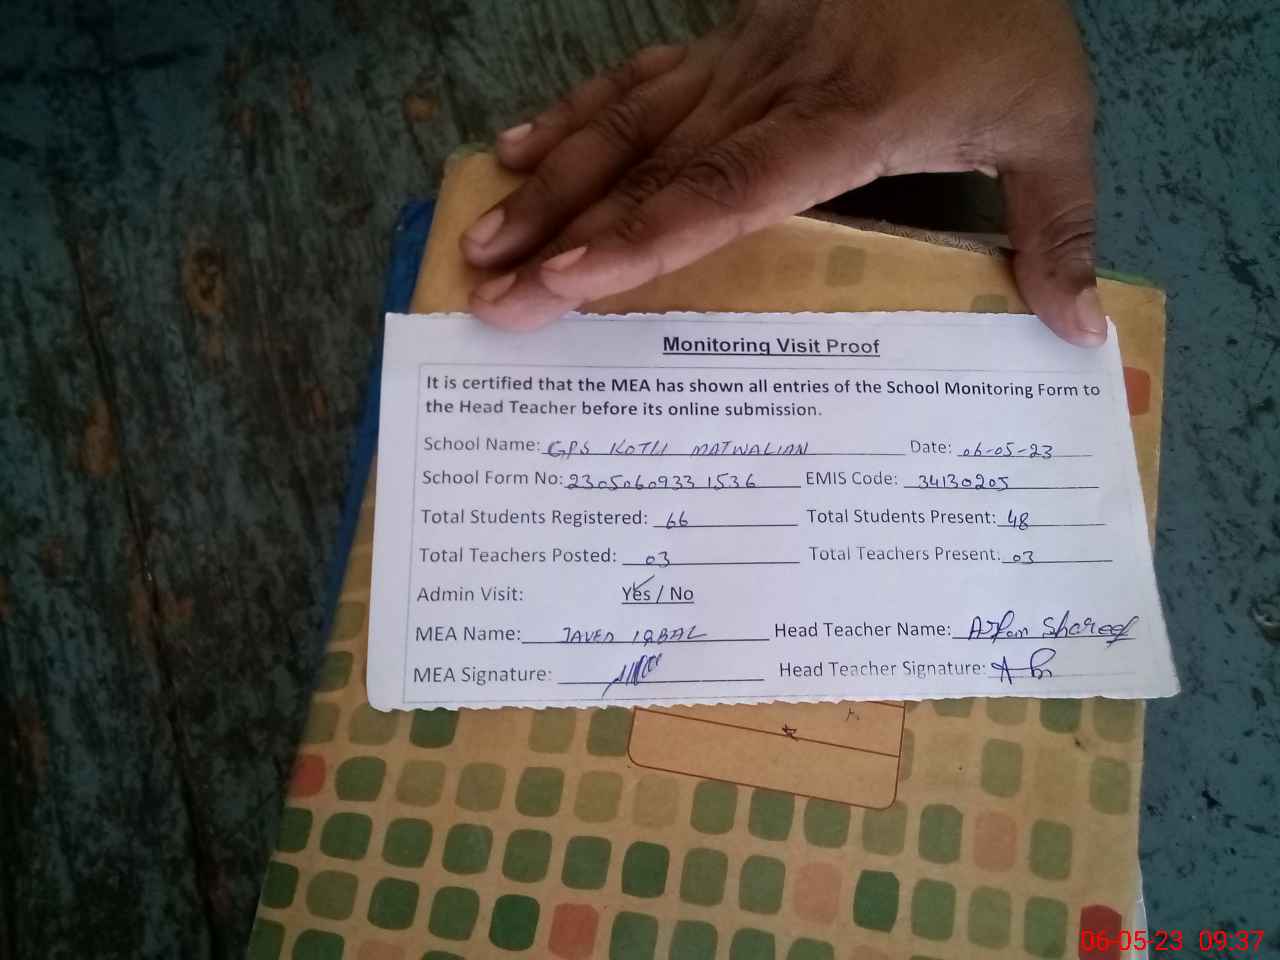 Monitoring Visit Proof
It is certified that the MEA has shown all entries of the School Monitoring Form to
the Head Teacher before its online submission.
School Name: GPS KOTLI MATWALIAN Date: 06-05-23
School Form No: 2305060933 1536 EMIS Code: 34130205
Total Students Registered: 66 Total Students Present: 48
Total Teachers Posted: 03 Total Teachers Present: 03
Admin Visit: Yes / No
MEA Name: JAVED IQBAL Head Teacher Name: Shareef
MEA Signature: Head Teacher Signature:
06-05-23 09:37